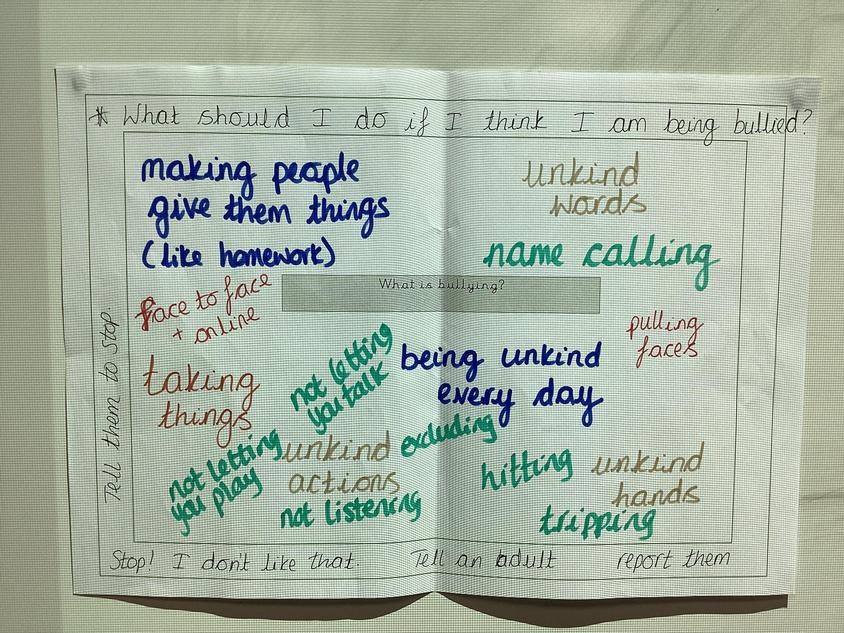 * What should I do if I think I am being bullied?
making people
give them things
(like homework)
unkind
words
name calling
What is bullying?
face to face
+ online
pulling
faces
taking
things
not letting
you talk
being unkind
every day
not letting
you play
unkind
actions
not listening
excluding
hitting
unkind
hands
tripping
Tell them to stop.
Stop! I don't like that.
Tell an adult
report them